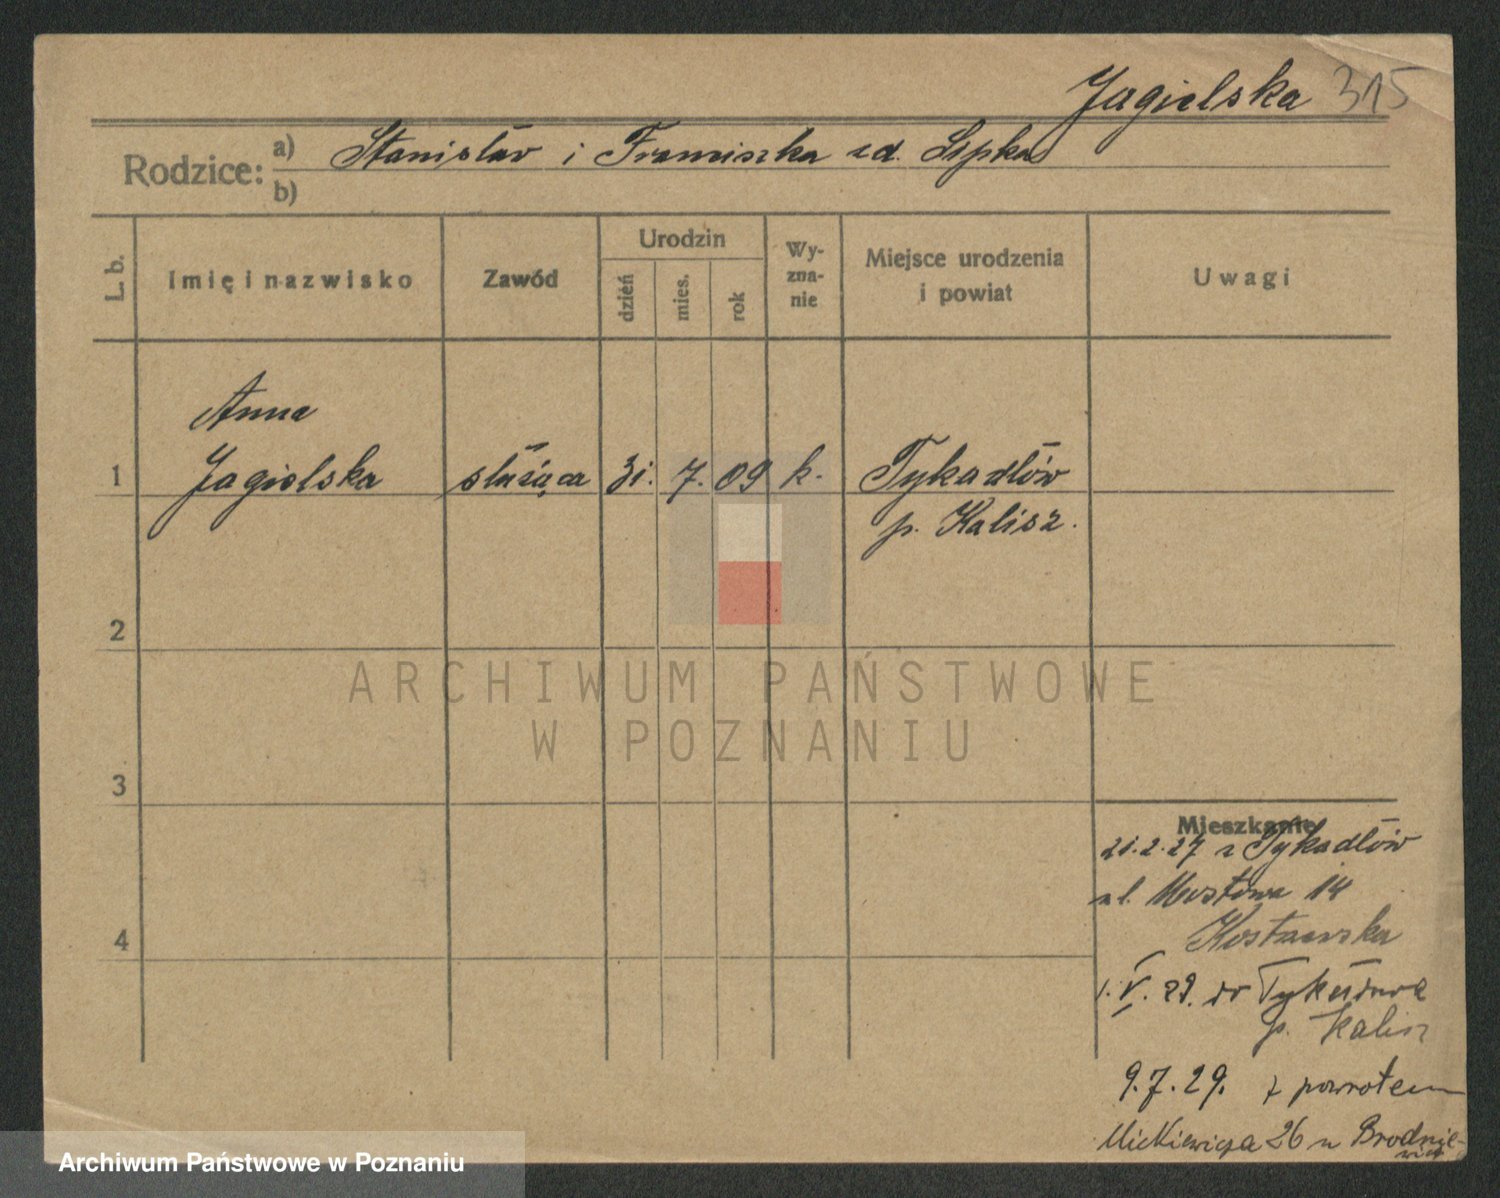 Jagielska 315
Rodzice: a) Stanisław i Franciszka zd. Lipka
b)
L. b.
Imię i nazwisko
Zawód
Urodzin
dzień
mies.
rok
Wy-
zna-
nie
Miejsce urodzenia
i powiat
Uwagi
Anna
1 Jagielska służąca 31. 7. 09 k. Tykadłów
p. Kalisz.
2
ARCHIWUM PAŃSTWOWE
W POZNANIU
3
Mieszkanie
21.2.27 z Tykadłów
ul. Mostowa 14
4
1. V. 29. do
p. Kalisz
9.7.29. z powrotem
Mickiewicza 26 u Brodnie-
wicz
Archiwum Państwowe w Poznaniu